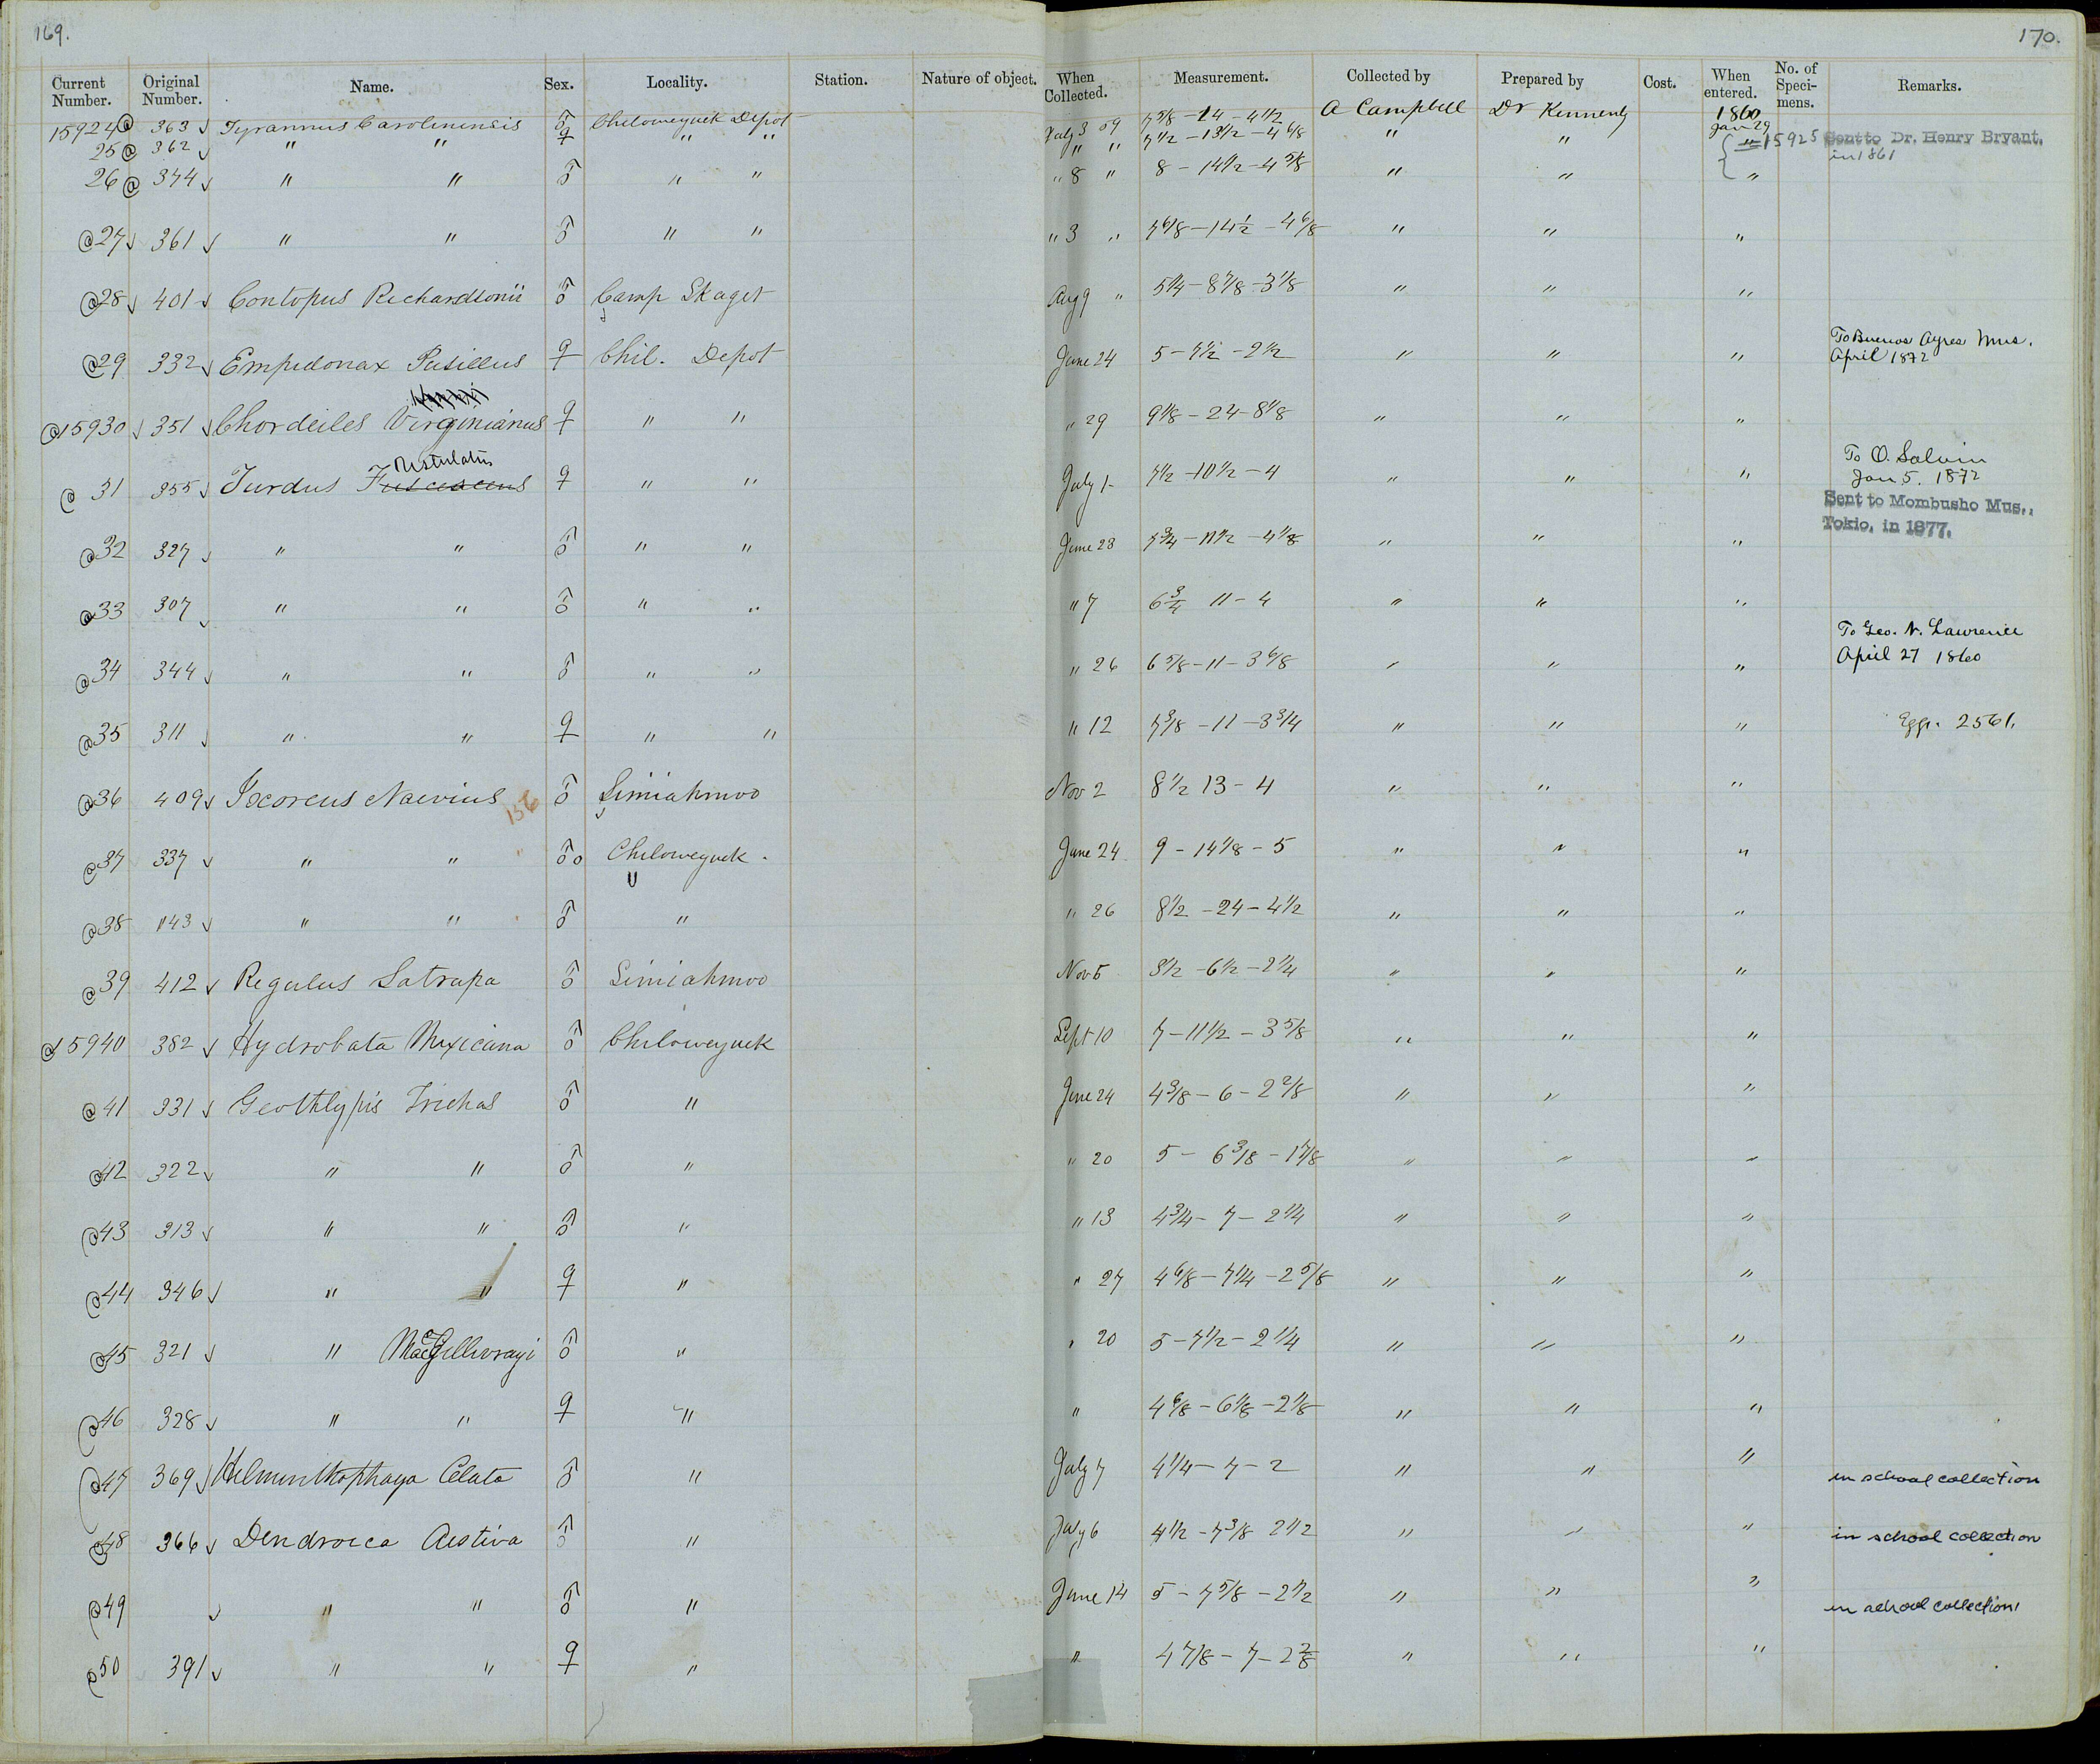 169.
170.
Current Number. Original Number. Name. Sex. Locality. Station. Nature of object. When Collected. Measurement. Collected by Prepared by Cost. When entered. No. of Speci- mens. Remarks.
15924 @ 363 √ Tyrannus Carolinensis ♂ Chiloweyuck Depot July 3 59 7 5/8 - 14 - 4 1/2 A Campbell Dr Kennerly 1860 Jan 29
25 @ 362 √ " " ♀ " " " " 7 1/2 - 13 1/2 - 4 6/8 " " " 15925 Sent to Dr. Henry Bryant, in 1861
26 @ 374 √ " " ♂ " " " 8 " 8 - 14 1/2 - 4 5/8 " " "
@ 27 √ 361 √ " " ♂ " " " 3 " 7 6/8 - 14 1/2 - 4 6/8 " " "
@ 28 √ 401 √ Contopus Richardsonii ♂ Camp Skaget Aug 9 " 5 1/4 - 8 7/8 - 3 1/8 " " "
@ 29 332 √ Empidonax Pusillus ♀ Chil. Depot June 24 5 - 7 1/2 - 2 1/2 " " " To Buenos Ayres Mus. April 1872
@ 15930 √ 351 √ Chordeiles Virginianus ♀ " " " 29 9 1/8 - 24 - 8 1/8 " " "
@ 31 355 √ Turdus Fuscescens Ustulatus ♀ " " July 1 7 1/2 - 10 1/2 - 4 " " " To O. Salvin Jan 5. 1872
Sent to Mombusho Mus., Tokio, in 1877.
@ 32 327 √ " " ♂ " " June 23 7 3/4 - 11 1/2 - 4 1/8 " " "
@ 33 307 √ " " ♂ " " " 7 6 3/4 11 - 4 " " "
@ 34 344 √ " " ♂ " " " 26 6 5/8 - 11 - 3 6/8 " " " To Geo. N. Lawrence April 27 1860
@ 35 311 √ " " ♀ " " " 12 7 3/8 - 11 - 3 3/4 " " " Egg. 2561.
@ 36 409 √ Ixoreus Naevius 156 ♂ Simiahmoo Nov 2 8 1/2 13 - 4 " " "
@ 37 337 √ " " ♂ Chiloweyuck. June 24 9 - 14 1/8 - 5 " " "
@ 38 143 √ " " ♂ " " 26 8 1/2 - 24 - 4 1/2 " " "
@ 39 412 √ Regulus Satrapa ♂ Simiahmoo Nov 5 3 1/2 - 6 1/2 - 2 1/4 " " "
@ 15940 382 √ Hydrobata Mexicana ♂ Chiloweyuck Sept 10 7 - 11 1/2 - 3 5/8 " " "
@ 41 331 √ Geothlypis Trichas ♂ " June 24 4 3/8 - 6 - 2 2/8 " " "
@ 42 322 √ " " ♂ " " 20 5 - 6 3/8 - 1 7/8 " " "
@ 43 313 √ " " ♂ " " 13 4 3/4 - 7 - 2 1/4 " " "
@ 44 346 √ " " ♀ " " 27 4 6/8 - 7 1/4 - 2 5/8 " " "
@ 45 321 √ " MacGillivrayi ♂ " " 20 5 - 7 1/2 - 2 1/4 " " "
@ 46 328 √ " " ♀ " " 4 6/8 - 6 1/8 - 2 1/8 " " "
@ 47 369 √ Helminthophaga Celata ♂ " July 7 4 1/4 - 7 - 2 " " " in school collection
@ 48 366 √ Dendroica Aestiva ♂ " July 6 4 1/2 - 7 3/8 2 1/2 " " " in school collection
@ 49 √ " " ♂ " June 14 5 - 7 5/8 - 2 1/2 " " " in school collection
@ 50 391 √ " " ♀ " " 4 7/8 - 7 - 2 2/8 " " "